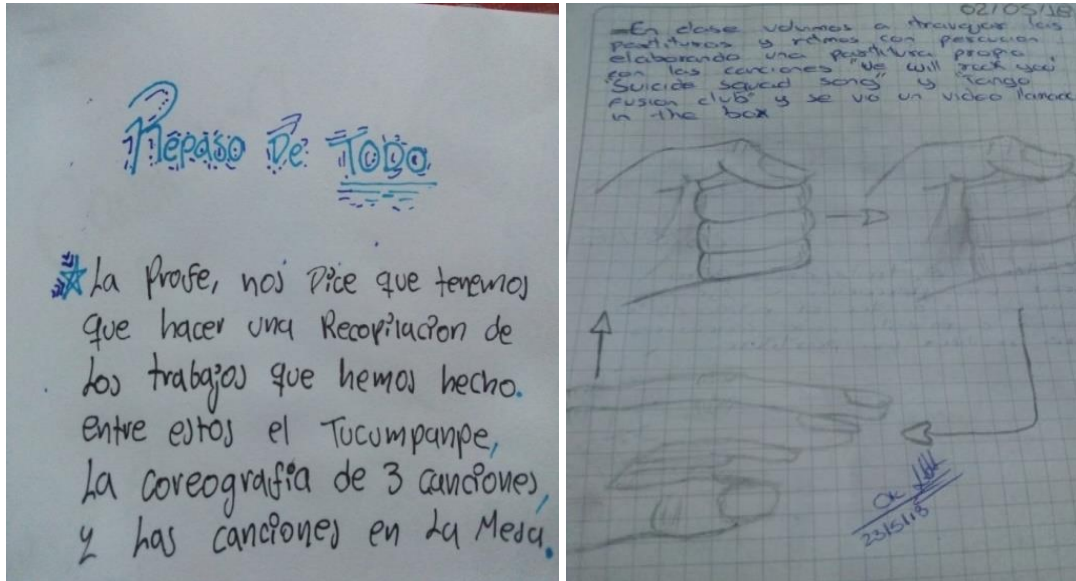 Repaso De TODO
La Profe, nos Dice que tenemos
que hacer una Recopilacion de
Los trabajos que hemos hecho.
entre estos el Tucumpanpe,
La coreografia de 3 canciones,
y Las canciones en La Mesa.
02/05/18
-En clase volvimos a
partituras y ritmos con percucion
elaborando una partitura propio
con las canciones "We will rock you",
"Suicide squad song" y "Tango
Fusion club" y se vio un video
in the box
Ok
23/5/18